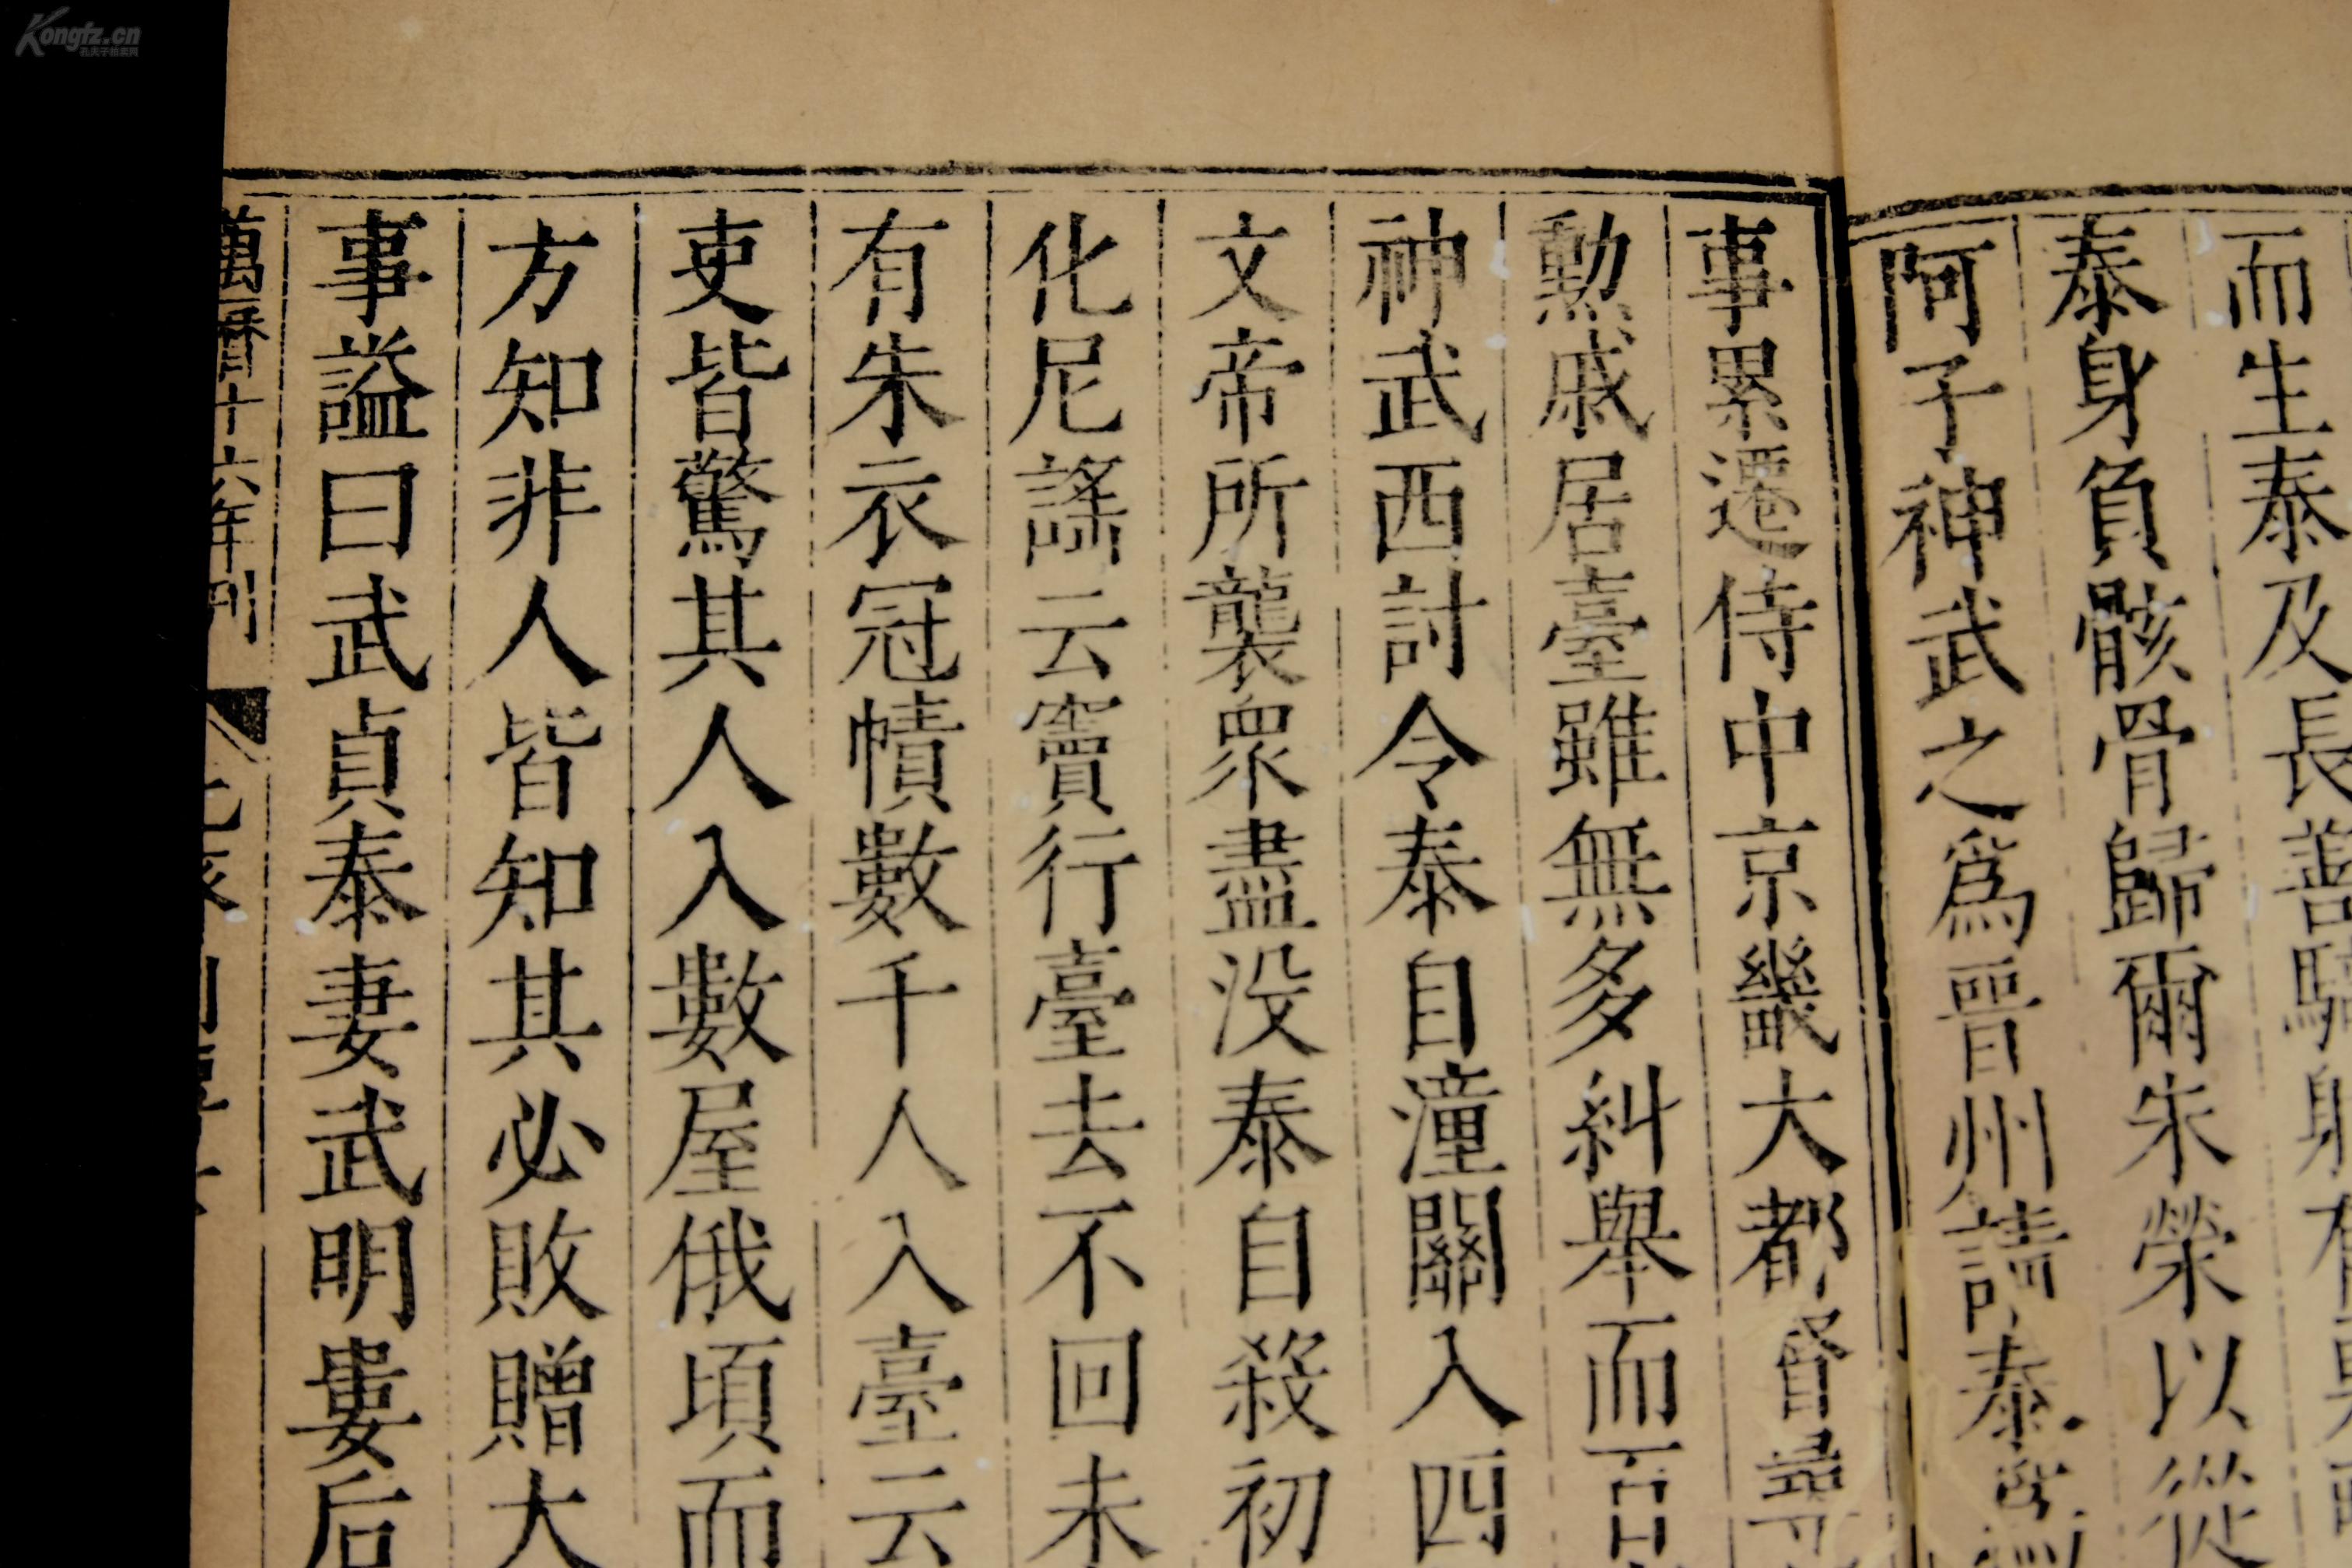 Kongfz.cn
而生泰及長善騎射有
泰身負骸骨歸爾朱榮以從
阿子神武之爲晉州請泰爲
事累遷侍中京畿大都督尋
勳戚居臺雖無多糾舉而百
神武西討令泰自潼關入四
文帝所襲衆盡没泰自殺初
化尼謠云竇行臺去不回未
有朱衣冠幘數千人入臺云
吏皆驚其人入數屋俄頃而
方知非人皆知其必敗贈大
事謚曰武貞泰妻武明婁后
萬曆十六年刊